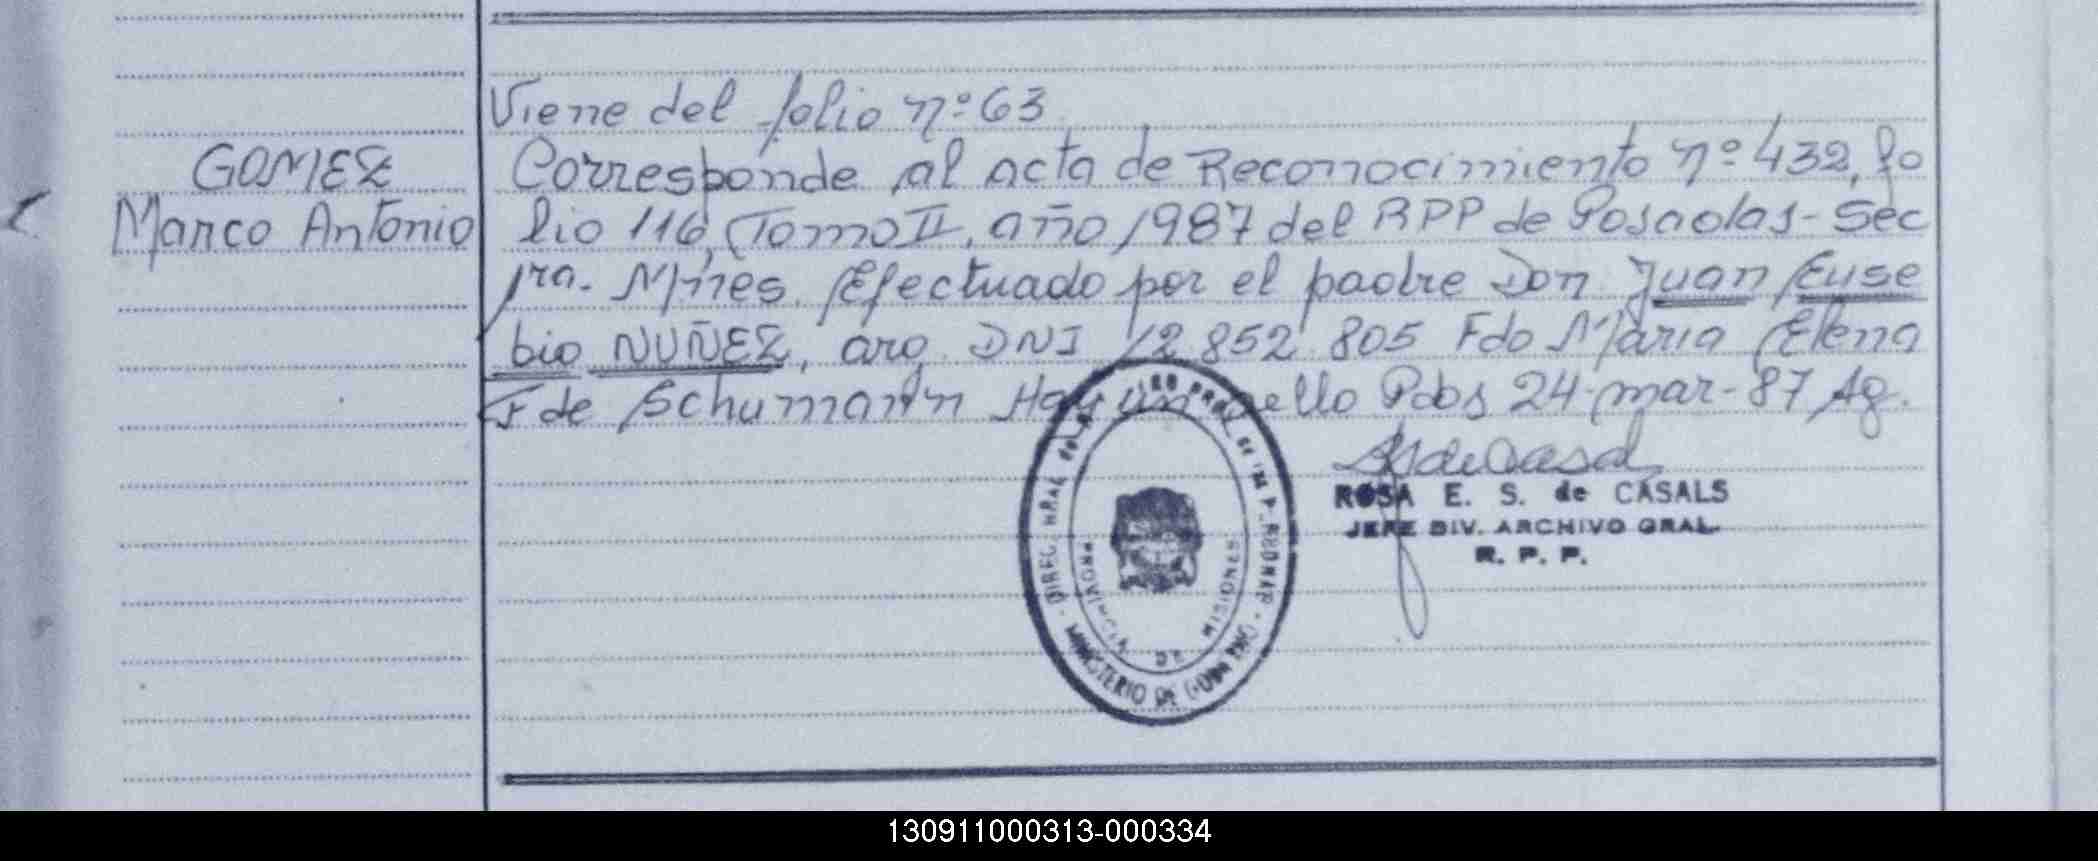 Viene del folio nº 63
GOMEZ
Marco Antonio
Corresponde al acta de Reconocimiento nº 432, fo
lio 116, Tomo II, año 1987 del RPP de Posadas - Sec
1ra. Mnes. Efectuado por el padre Don Juan Euse
bio NUÑEZ, arg. DNI 12 852 805 Fdo María Elena
F de Schumann Hay un sello Pdas 24-mar-87 Ag.
ROSA E. S. de CASALS
JEFE DIV. ARCHIVO GRAL.
R. P. P.
PROVINCIA DE MISIONES
MINISTERIO DE GOBIERNO
130911000313-000334